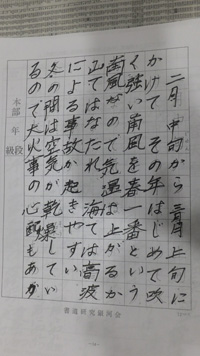 二月中旬から三月上旬に
かけてその年はじめて吹
く強い南風を春一番という
南風なので気温は上がるが
山ではなだれ海では高波
による事故が起きやすい
冬の間は空気が乾燥してい
るので大火事の心配もあが
本部 年 段級
書道研究銀河会